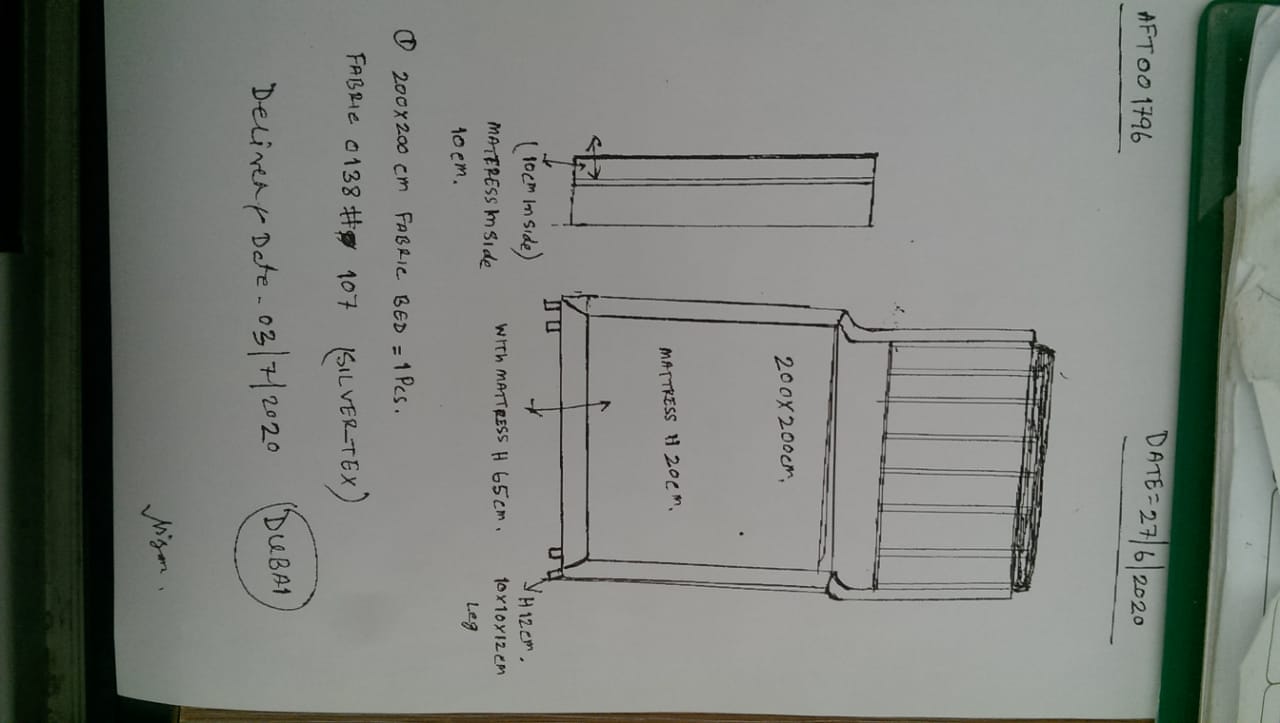 AFT001796
DATE=27/6/2020
200X200cm,
MATTRESS H 20cm.
(10cm Inside)
MATERESS Inside
10cm.
WITH MATTRESS H 65cm.
H12cm.
10x10x12cm
Leg
① 200X200 cm FABRIC BED = 1Pcs.
FABRIC 0138 # 107 (SILVER-TEX)
Delivery Date - 03/7/2020
DUBAI